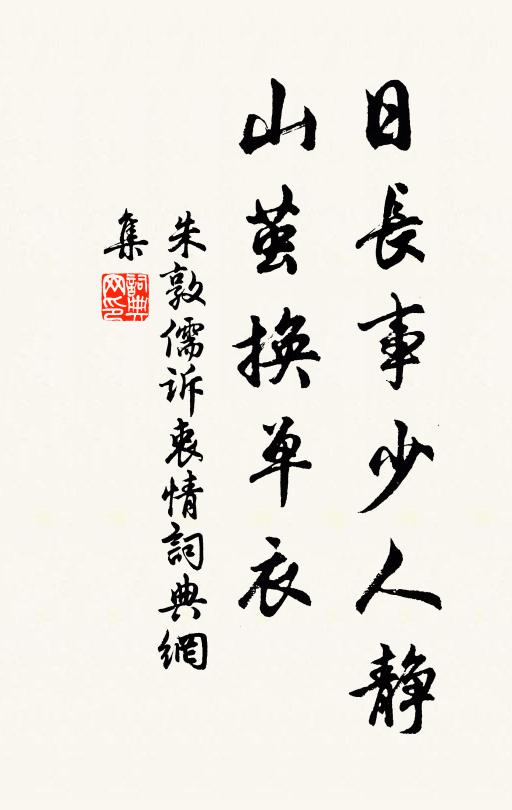 日長事少人静
山茧换单衣
朱敦儒诉衷情詞典網
集
詞典
网印